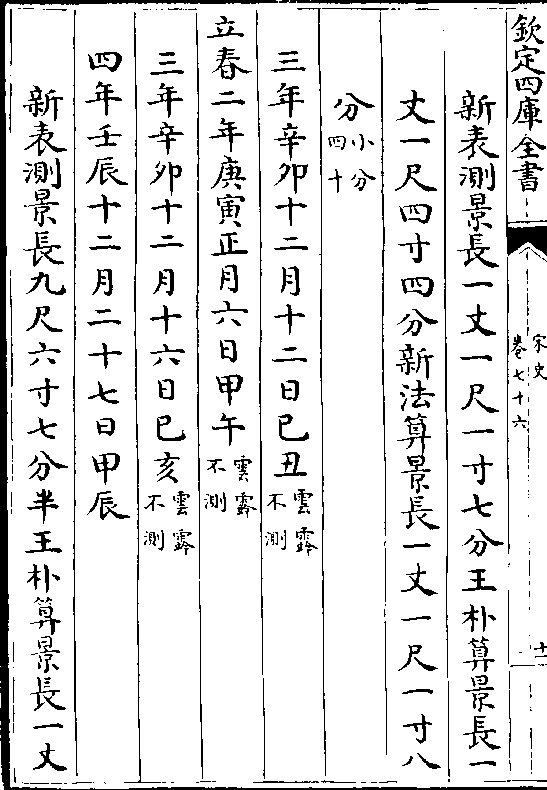 欽定四庫全書
宋史
卷七十六
十一
新表測景長一丈一尺一寸七分王朴算景長一
丈一尺四寸四分新法算景長一丈一尺一寸八
分小分四十
三年辛卯十二月十二日己丑雲霧不測
立春二年庚寅正月六日甲午雲霧不測
三年辛卯十二月十六日已亥雲霧不測
四年壬辰十二月二十七日甲辰
新表測景長九尺六寸七分半王朴算景長一丈